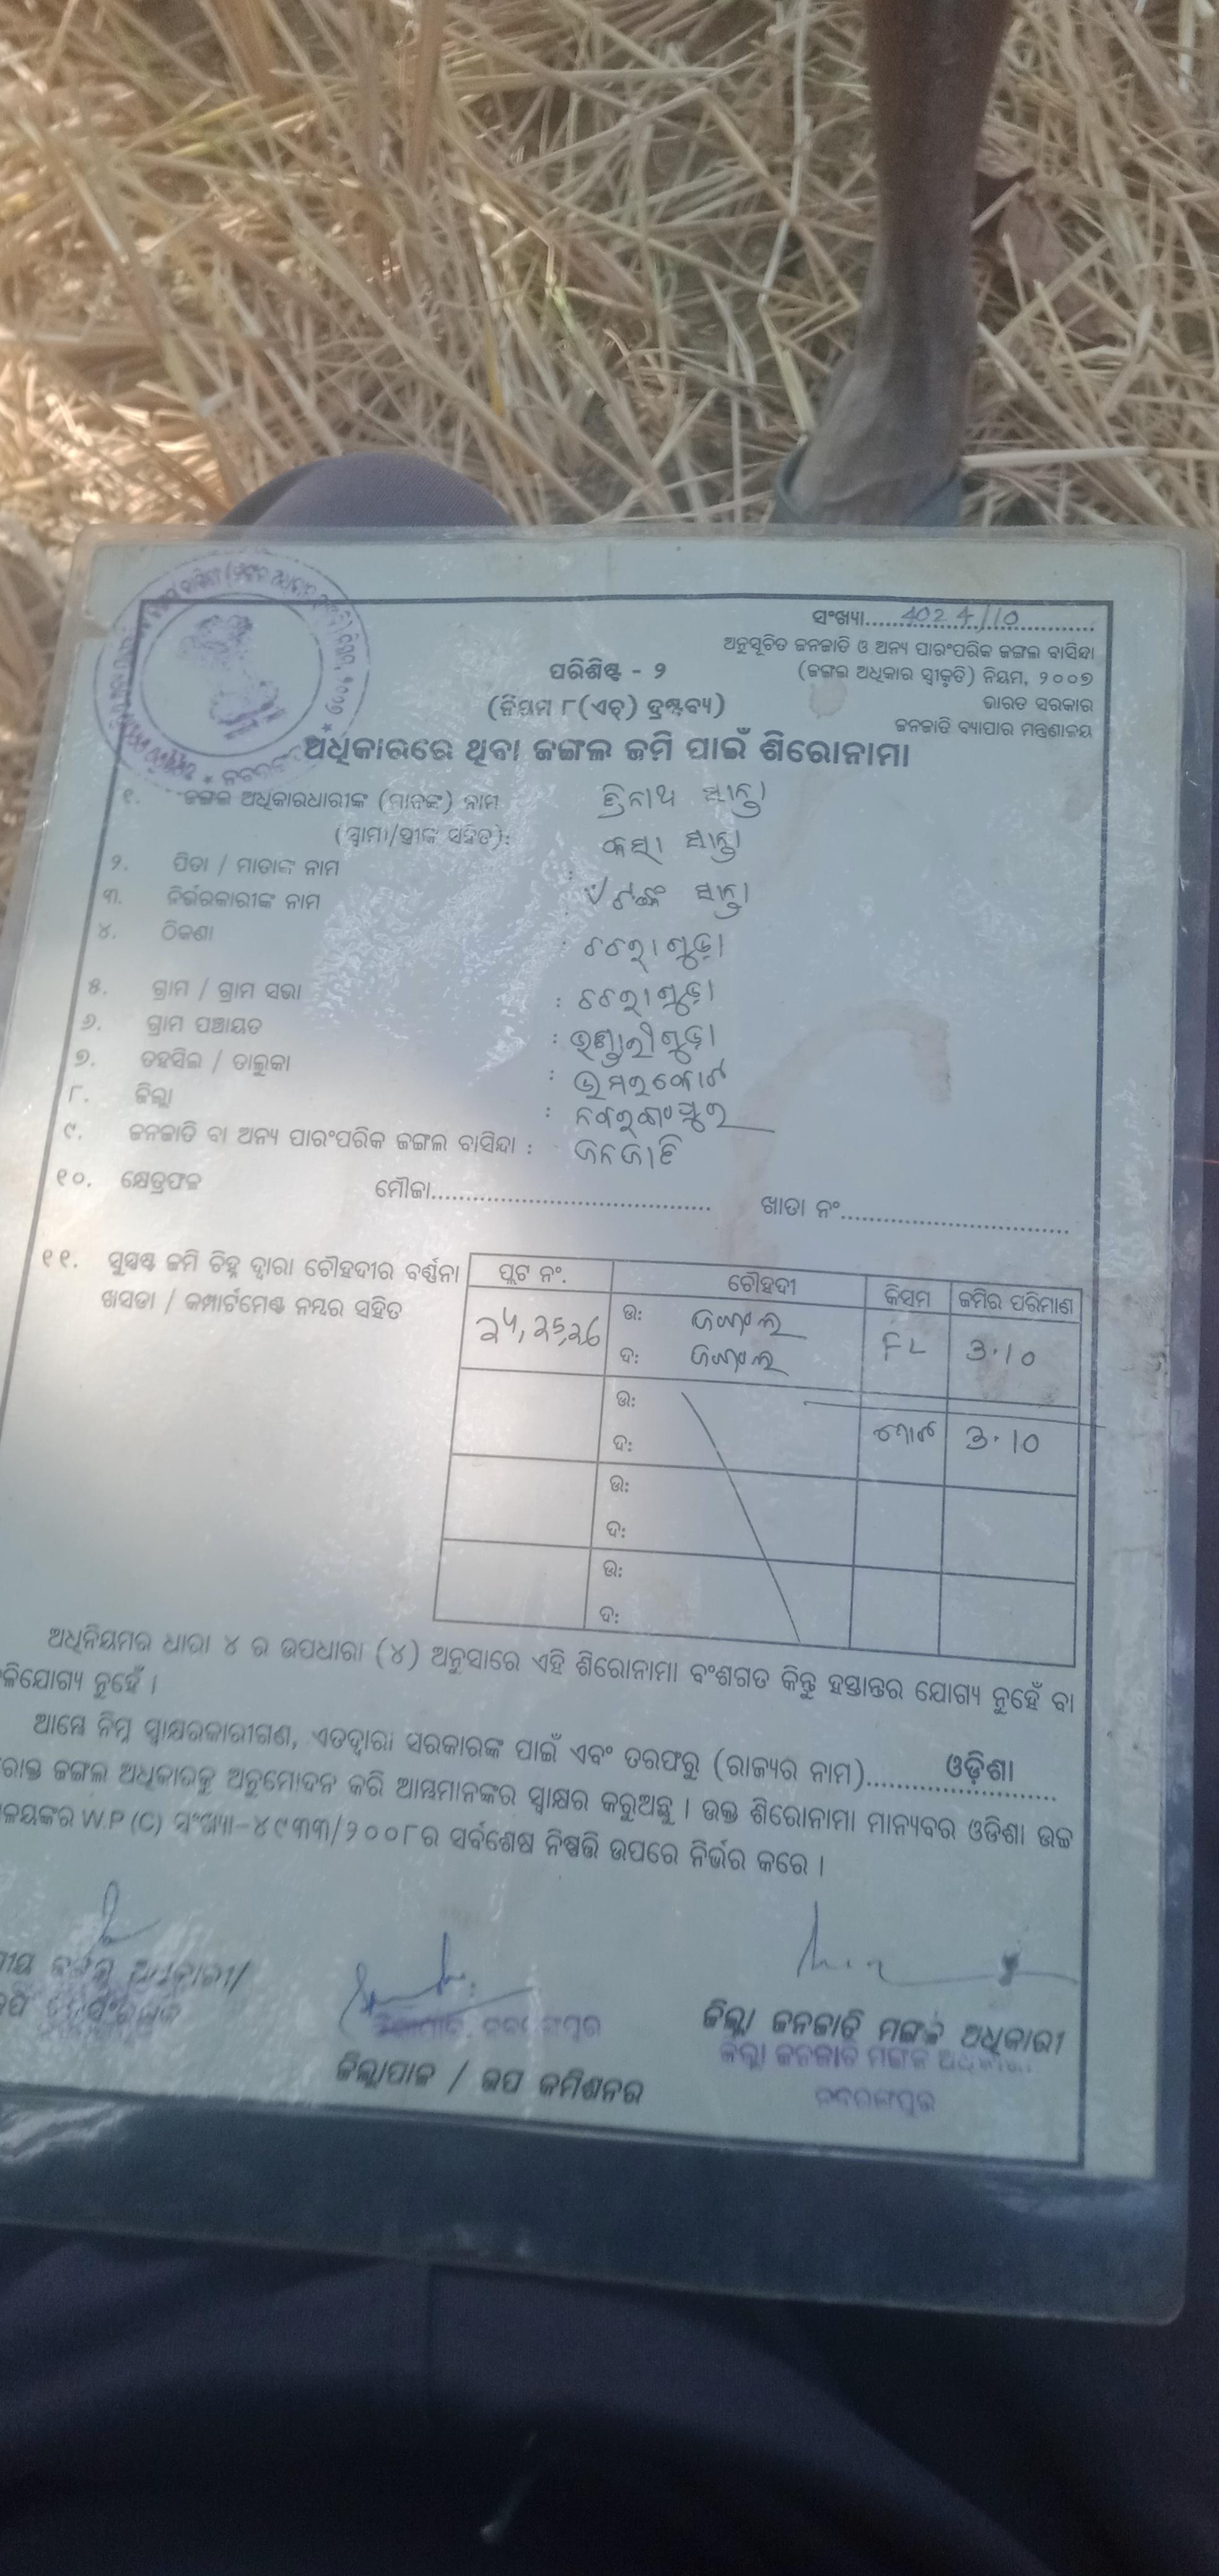 ସଂଖ୍ୟା.....4024/10.....
ଅନୁସୂଚିତ ଜନଜାତି ଓ ଅନ୍ୟ ପାରଂପରିକ ଜଙ୍ଗଲ ବାସିନ୍ଦା
(ଜଙ୍ଗଲ ଅଧିକାର ସ୍ୱୀକୃତି) ନିୟମ, ୨୦୦୭
ଭାରତ ସରକାର
ଜନଜାତି ବ୍ୟାପାର ମନ୍ତ୍ରଣାଳୟ
ପରିଶିଷ୍ଟ - ୨
(ନିୟମ ୮(ଏଚ୍) ଦ୍ରଷ୍ଟବ୍ୟ)
ଅଧିକାରରେ ଥିବା ଜଙ୍ଗଲ ଜମି ପାଇଁ ଶିରୋନାମା
୧. ଜଙ୍ଗଲ ଅଧିକାରଧାରୀଙ୍କ (ମାନଙ୍କ) ନାମ ତ୍ରିନାଥ ସାନ୍ତା
(ସ୍ୱାମୀ/ସ୍ତ୍ରୀଙ୍କ ସହିତ): ସାନ୍ତା
୨. ପିତା / ମାତାଙ୍କ ନାମ : ସାନ୍ତା
୩. ନିର୍ଭରକାରୀଙ୍କ ନାମ :
୪. ଠିକଣା :
୫. ଗ୍ରାମ / ଗ୍ରାମ ସଭା :
୬. ଗ୍ରାମ ପଞ୍ଚାୟତ : ଭଣ୍ଡାରୀଗୁଡ଼ା
୭. ତହସିଲ / ତାଲୁକା : ଉମରକୋଟ
୮. ଜିଲ୍ଲା : ନବରଙ୍ଗପୁର
୯. ଜନଜାତି ବା ଅନ୍ୟ ପାରଂପରିକ ଜଙ୍ଗଲ ବାସିନ୍ଦା : ଜନଜାତି
୧୦. କ୍ଷେତ୍ରଫଳ ମୌଜା..... ଖାତା ନଂ.....
୧୧. ସୁସ୍ପଷ୍ଟ ଜମି ଚିହ୍ନ ଦ୍ୱାରା ଚୌହଦୀର ବର୍ଣ୍ଣନା
ଖସଡା / କମ୍ପାର୍ଟମେଣ୍ଟ ନମ୍ବର ସହିତ
ପ୍ଲଟ ନଂ. ଚୌହଦୀ କିସମ ଜମିର ପରିମାଣ
25,26 ଉ: ଜଙ୍ଗଲ FL 3.10
ଦ: ଜଙ୍ଗଲ
ଉ: ମୋଟ 3.10
ଦ:
ଉ:
ଦ:
ଉ:
ଦ:
ଅଧିନିୟମର ଧାରା ୪ ର ଉପଧାରା (୪) ଅନୁସାରେ ଏହି ଶିରୋନାମା ବଂଶଗତ କିନ୍ତୁ ହସ୍ତାନ୍ତର ଯୋଗ୍ୟ ନୁହେଁ ବା
ଳିଯୋଗ୍ୟ ନୁହେଁ ।
ଆମ୍ଭେ ନିମ୍ନ ସ୍ୱାକ୍ଷରକାରୀଗଣ, ଏତଦ୍ୱାରା ସରକାରଙ୍କ ପାଇଁ ଏବଂ ତରଫରୁ (ରାଜ୍ୟର ନାମ).....ଓଡ଼ିଶା.....
ରୋକ୍ତ ଜଙ୍ଗଲ ଅଧିକାରକୁ ଅନୁମୋଦନ କରି ଆମ୍ଭମାନଙ୍କର ସ୍ୱାକ୍ଷର କରୁଅଛୁ । ଉକ୍ତ ଶିରୋନାମା ମାନ୍ୟବର ଓଡିଶା ଉଚ୍ଚ
ଳୟଙ୍କର W.P (C) ସଂଖ୍ୟା-୪୯୩୩/୨୦୦୮ର ସର୍ବଶେଷ ନିଷ୍ପତ୍ତି ଉପରେ ନିର୍ଭର କରେ ।
ଜିଲ୍ଲା ଜନଜାତି ମଙ୍ଗଳ ଅଧିକାରୀ
ଜିଲ୍ଲା ଜନଜାତି ମଙ୍ଗଳ ଅଧିକାରୀ
ନବରଙ୍ଗପୁର
ଜିଲ୍ଲାପାଳ / ଉପ କମିଶନର